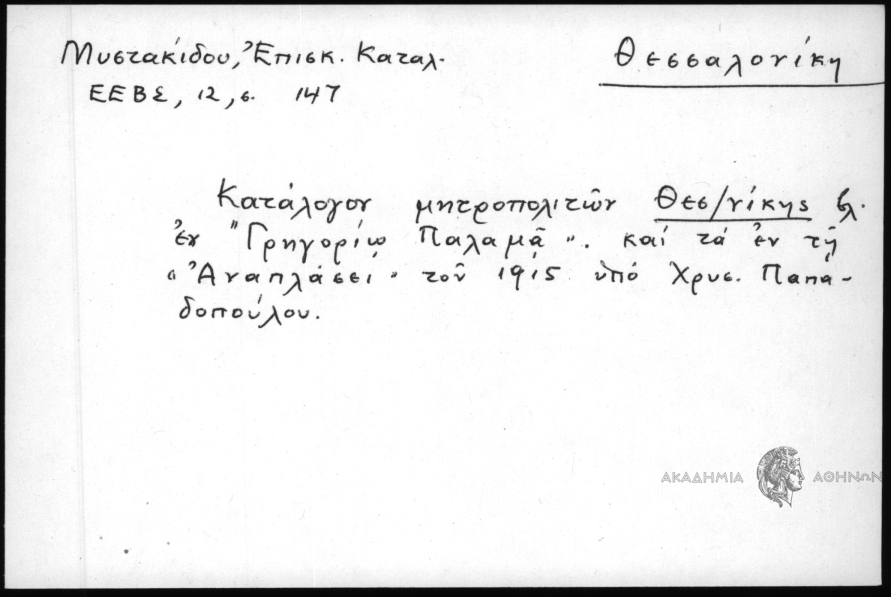 Μυστακίδου, Ἐπισκ. Καταλ.
Θεσσαλονίκη
ΕΕΒΣ, 12, σ. 147
Κατάλογον μητροπολιτῶν Θεσ/νίκης βλ.
ἐν "Γρηγορίῳ Παλαμᾶ". καί τά ἐν τῇ
"Ἀναπλάσει" τοῦ 1915 ὑπό Χρυσ. Παπα-
δοπούλου.
ΑΚΑΔΗΜΙΑ ΑΘΗΝΩΝ